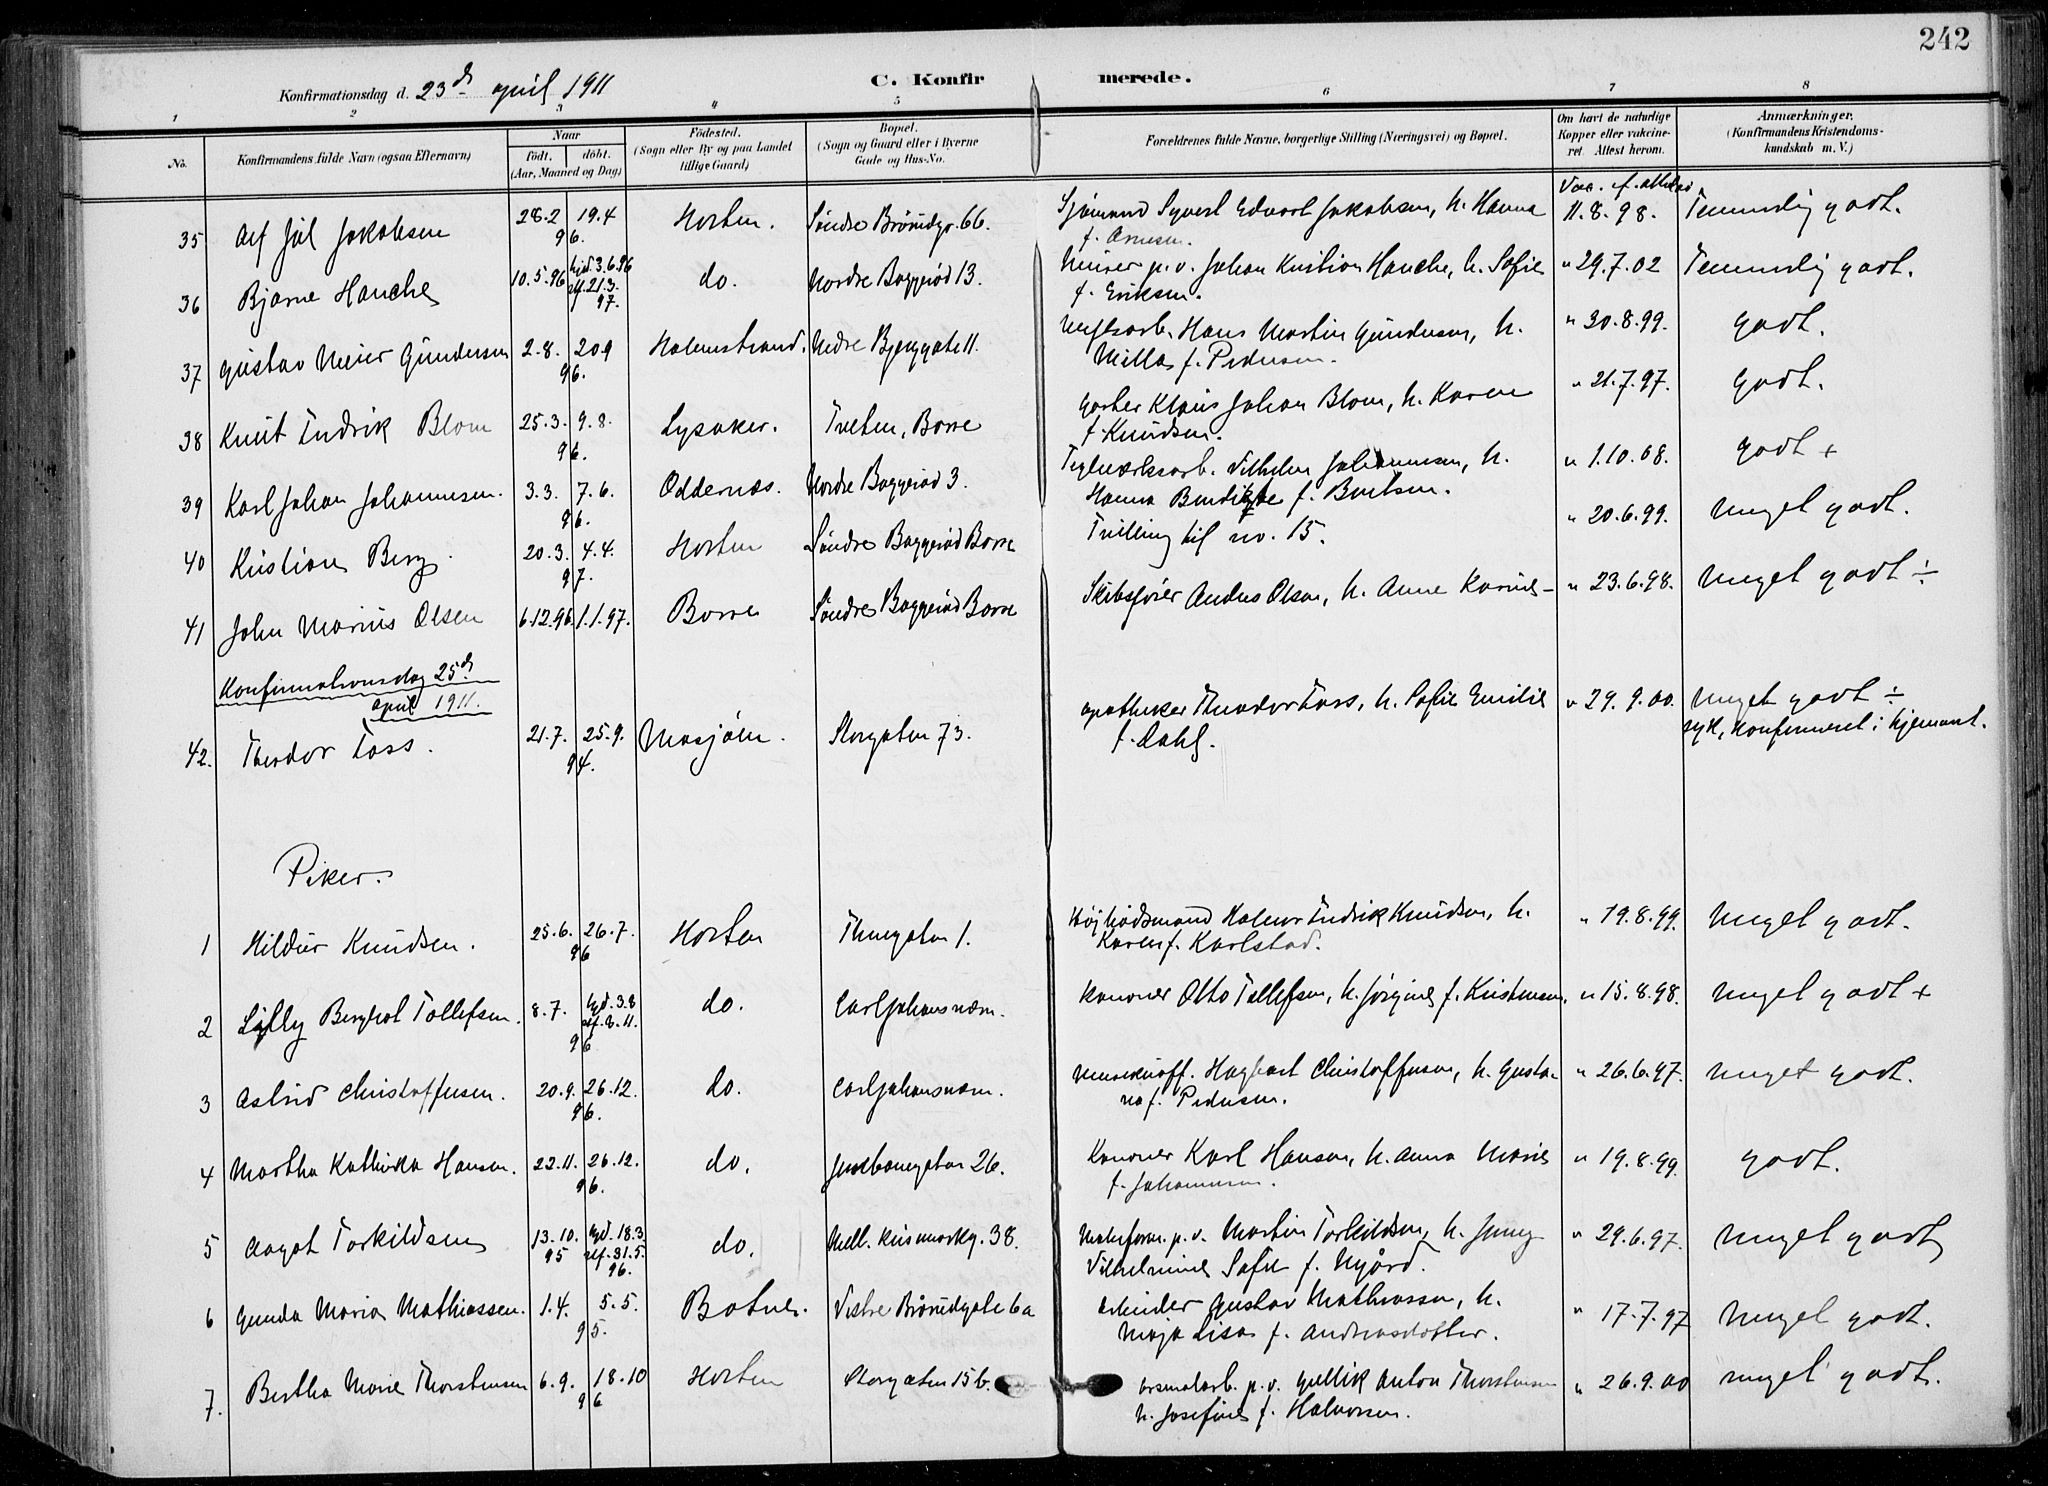 242
Konfirmationsdag d. 23d april 1911
C. Konfirmerede.
1 2 3 4 5 6 7 8
No. Konfirmandens fulde Navn (ogsaa Efternavn) Naar födt. döbt. (Aar, Maaned og Dag) Födested. (Sogn eller By og paa Landet tillige Gaard) Bopæl. (Sogn og Gaard eller i Byerne Gade og Hus-No. Forældrenes fulde Navne, borgerlige Stilling (Næringsvei) og Bopæl. Om havt de naturlige Kopper eller vakcineret. Attest herom. Anmærkninger. (Konfirmandens Kristendomskundskab m. V.)
Vac. f. attest
35 Alf Jul Jakobsen 28.2 19.4 96. Horten. Søndre Brårudgr. 66. Sjømand Syvert Edvart Jakobsen, h. Hanna 11.8.98. Temmelig godt.
f. Arnesen.
36 Bjarne Hanche 10.5.96 hjd. 3.6.96 alf. 21.3.97. do. Nordre Baggerød 13. Murer p.v. Johan Kristian Hanche, h. Sofie " 29.7.02 Temmelig godt.
f. Eriksen.
37 Gustav Meier Gundersen 2.8. 20.9 96. Holmestrand. Nedre Bjerggate 11. Hans Martin Gundersen, h. " 30.8.99. godt.
Milla f. Pedersen.
38 Knut Fredrik Blom 25.3. 9.8. 96. Lysaker. Tveten, Borre Klaus Johan Blom, h. Karen " 21.7.97. godt.
f. Knudsen.
39 Karl Johan Johannesen. 3.3. 7.6. 96. Oddernæs. Nordre Baggerød 3. Teglverksarb. Vilhelm Johannesen, h. " 1.10.08. godt +
Hanna Bendikte f. Berntsen.
40 Kristian Berg. 20.3. 4.4. 97. Horten Søndre Baggerød Borre Tvilling til no. 15. " 20.6.99. Meget godt.
41 John Marius Olsen 6.12.96. 1.1.97. Borre Søndre Baggerød Borre Skibsfører Anders Olsen, h. Anne Karine - " 23.6.98. Meget godt ÷
Konfirmationsdag 25d april 1911.
42. Theodor Foss. 21.7. 25.9. 94. Mosjøen. Storgaten 73. apotheker Theodor Foss, h. Sofie Emilie " 29.9.00. Meget godt ÷
f. Dahl. syk, konfirmeret i hjemmet.
Piker.
1 Hildur Knudsen. 25.6. 26.7. 96 Horten Thuegaten 1. Højbådsmand Halvor Fredrik Knudsen, h. " 19.8.99. Meget godt.
Karen f. Karlstad.
2 Lilly Berghot Tollefsen. 8.7. hjd. 3.8 alf. 8.11. 96 do. Carljohansværn. Kanoner Otto Tollefsen, h. Jørgine f. Kristensen, " 15.8.98. Meget godt +
3 Astrid Christoffersen. 20.9. 26.12. 96. do. Carljohansværn. Hagbart Christoffersen, h. Gusta- " 26.6.97. Meget godt.
va f. Pedersen.
4 Martha Kathinka Hansen. 22.11. 26.12. 96. do. Jernbanegaten 26. Kanoner Karl Hansen, h. Anna Marie " 19.8.99. godt.
f. Johannesen.
5 Aagot Torkildsen 13.10. 95 hjd. 18.3 alf. 31.5 96. do. Mell. Keisemarkg. 38. p.v. Martin Torkildsen, h. Jenny " 29.6.97. Meget godt
Vilhelmine Sofie f. Nygård.
6 Gunda Maria Mathiassen. 1.4. 5.5. 95. Botne. Vestre Brårudgate 6a Arbeider Gustav Mathiassen, h. " 17.7.97 Meget godt.
Maja Lisa f. Andreasdotter.
7. Bertha Marie Thorstensen 6.9. 18.10 96 Horten Storgaten 15b. arsenalarb. p.v. Gullik Anton Thorstensen " 26.9.00 meget godt.
h. Josefine f. Halvorsen.